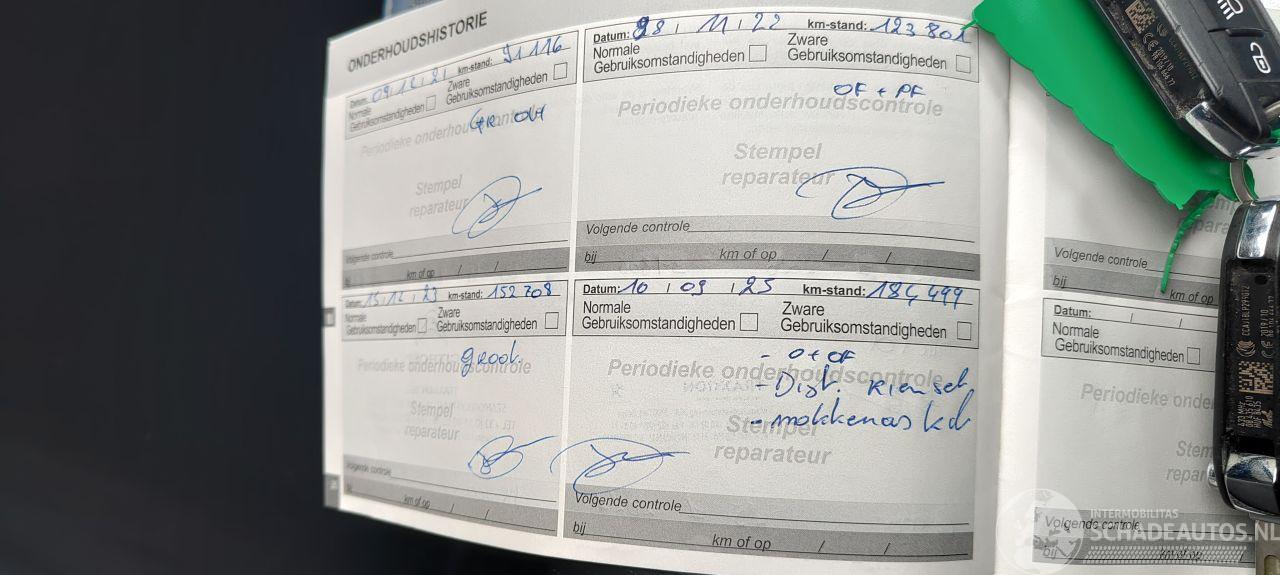 ONDERHOUDSHISTORIE
Datum: 09 / 12 / 21 km-stand: 91116
Normale
Gebruiksomstandigheden
Zware
Gebruiksomstandigheden
Periodieke onderhoudscontrole
GR OH
Stempel
reparateur
Volgende controle
km of op / /
Datum: 28 / 11 / 22 km-stand: 123801
Normale
Gebruiksomstandigheden
Zware
Gebruiksomstandigheden
OF + PF
Periodieke onderhoudscontrole
Stempel
reparateur
Volgende controle
bij km of op / /
Datum: 15 / 12 / 23 km-stand: 152708
Normale
Gebruiksomstandigheden
Zware
Gebruiksomstandigheden
groot
Periodieke onderhoudscontrole
Stempel
reparateur
Volgende controle
km of op / /
Datum: 10 / 09 / 25 km-stand: 184499
Normale
Gebruiksomstandigheden
Zware
Gebruiksomstandigheden
- O + OF
Periodieke onderhoudscontrole
- Dist. Riem set
- nokkenas ket
Stempel
reparateur
Volgende controle
bij km of op / /
Volgende controle
bij km of op
Datum: / /
Normale
Gebruiksomstandigheden
Periodieke onder
Stem
repara
Volgende controle
bij km of op
INTERMOBILITAS
SCHADEAUTOS.NL